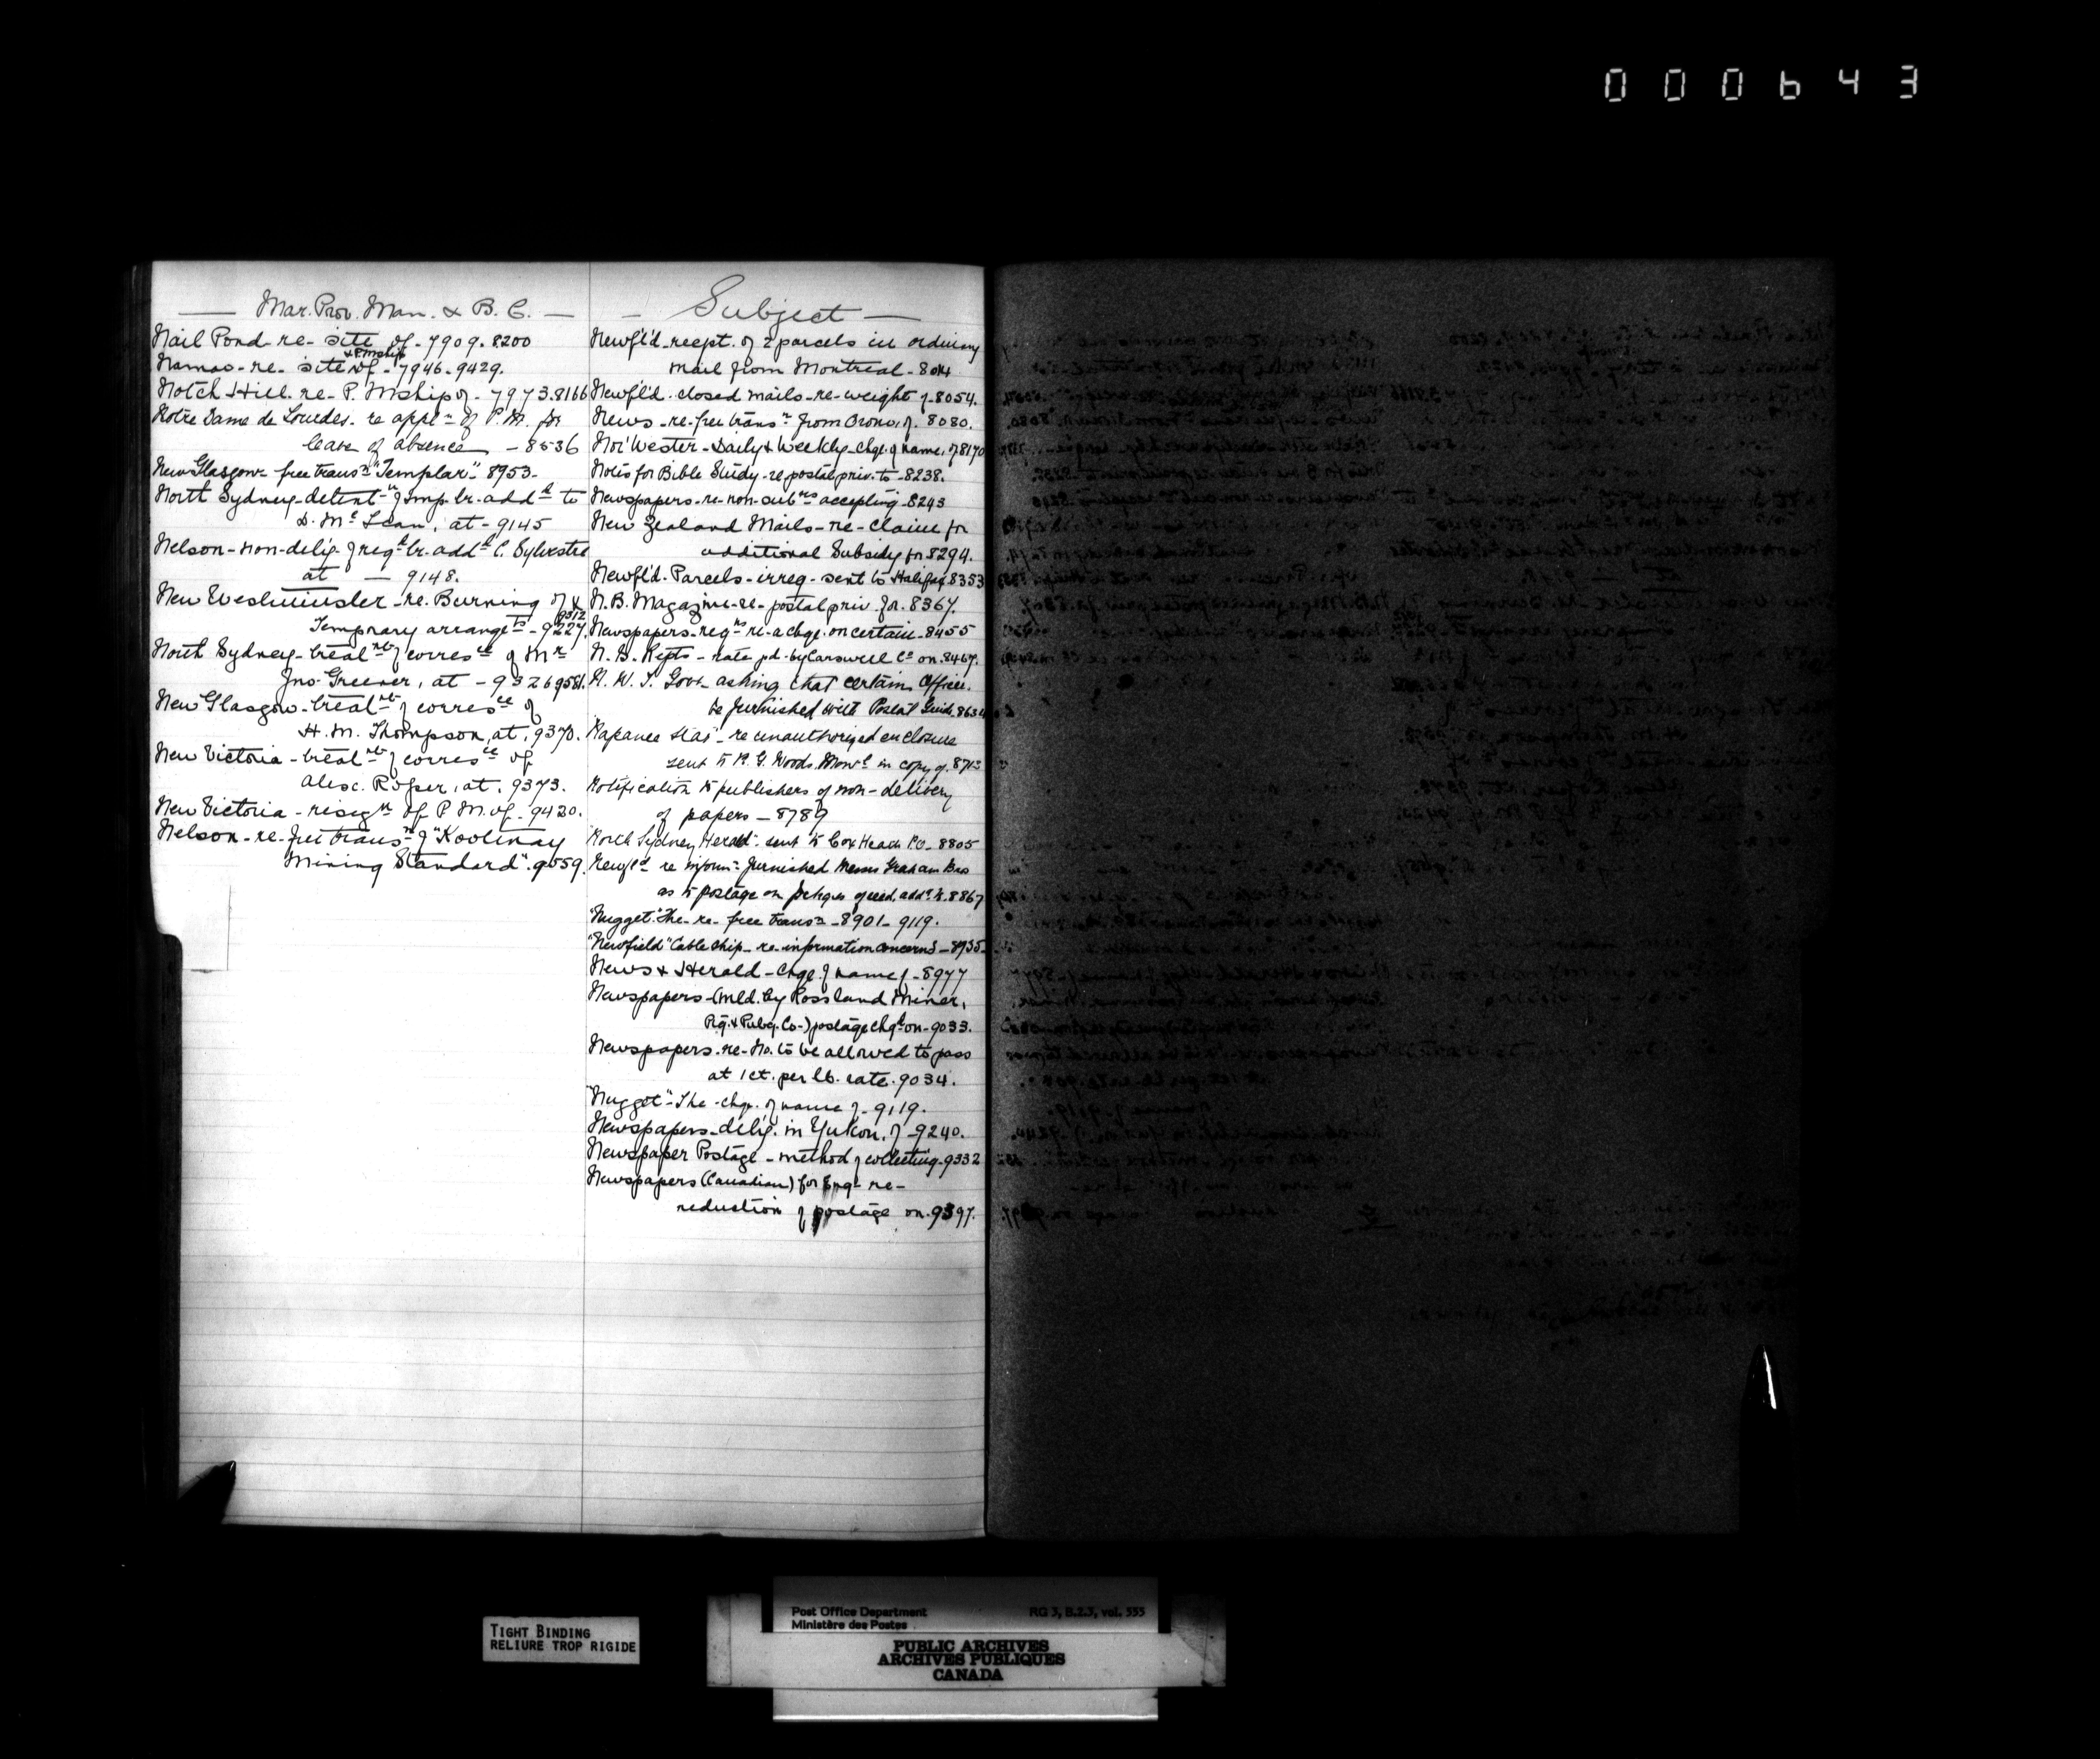 000643
Mar. Prov. Man. & B. C.
Nail Pond - re - site of - 7909. 8200
& P.Mship
Namao - re - site of - 7946 - 9429.
Notch Hill - re - P. Mship of - 7973. 8166
Notre Dame de Lourdes - re appln of P.M. for
leave of absence - 8536
New Glasgow - free transn "Templar" - 8953 -
North Sydney - detentn of imp. lr. addd to
D. Mc Lean, at - 9145
Nelson - non-delig - of regd lr. addd C. Sylvestre
at — 9148.
New Westminster - re. Burning of &
9312
Temporary arrangets - 9227.
North Sydney - treatmt of corresce of Mr
Jno. Greener, at - 9326 9581.
New Glasgow - treatmt of corresce of
H. M. Thompson, at, 9370.
New Victoria - treatmt of corresce of
Alex. Roper, at. 9373.
New Victoria - resign of P M. of - 9420.
Nelson - re - free transn of "Kootenay
Mining Standard". 9559.
Subject
Newf'l'd - recpt. of 2 parcels in ordinary
mail from Montreal - 8014
Newf'l'd - closed mails - re - weight of - 8054.
News - re - free transn from Orono, of. 8080.
Nor'Wester - Daily & Weekly - chge. of name, of 8170
Notes for Bible Study - re postal priv. to - 8238.
Newspapers - re - non-subrs accepting - 8243
New Zealand Mails - re - claim for
additional Subsidy for 8294.
Newf'l'd. Parcels - irreg - sent to Halifax 8353
N. B. Magazine - re - postal priv. for. 8367.
Newspapers - regns re - a chge. on certain - 8455
N. B. Repts - rate pd. by Carswell Co on. 8467.
N. W. T. Govt - asking that certain Offices
be furnished with Postal Guide 8634
Napanee Star - re unauthorized enclosure
sent to R. G. Woods. in copy of. 871
Notification to publishers of non-delivery
of papers - 8789
"North Sydney Herald". sent to Cow Head P.O - 8805
Newfld re informn furnished Messrs Graham Bros
as to postage on addd to. 8867
"Nugget" The - re - free transn - 8901 - 9119.
"Newfield" Cable Ship - re - information concerng - 8935
News & Herald - chge. of name of - 8977
Newspapers - (mld. by Rossland Miner,
Ptg. & Pubg. Co-) postage chgd on - 9033.
Newspapers - re - No. to be allowed to pass
at 1 ct. per lb. rate. 9034.
"Nugget" - The - chge. of name of - 9119.
Newspapers - delig. in Yukon, of - 9240.
Newspaper Postage - method of collecting - 9332
Newspapers (Canadian) for Engd re -
reduction of postage on. 9397.
TIGHT BINDING
RELIURE TROP RIGIDE
Post Office Department RG 3, B.2.3, vol. 555
Ministère des Postes
PUBLIC ARCHIVES
ARCHIVES PUBLIQUES
CANADA